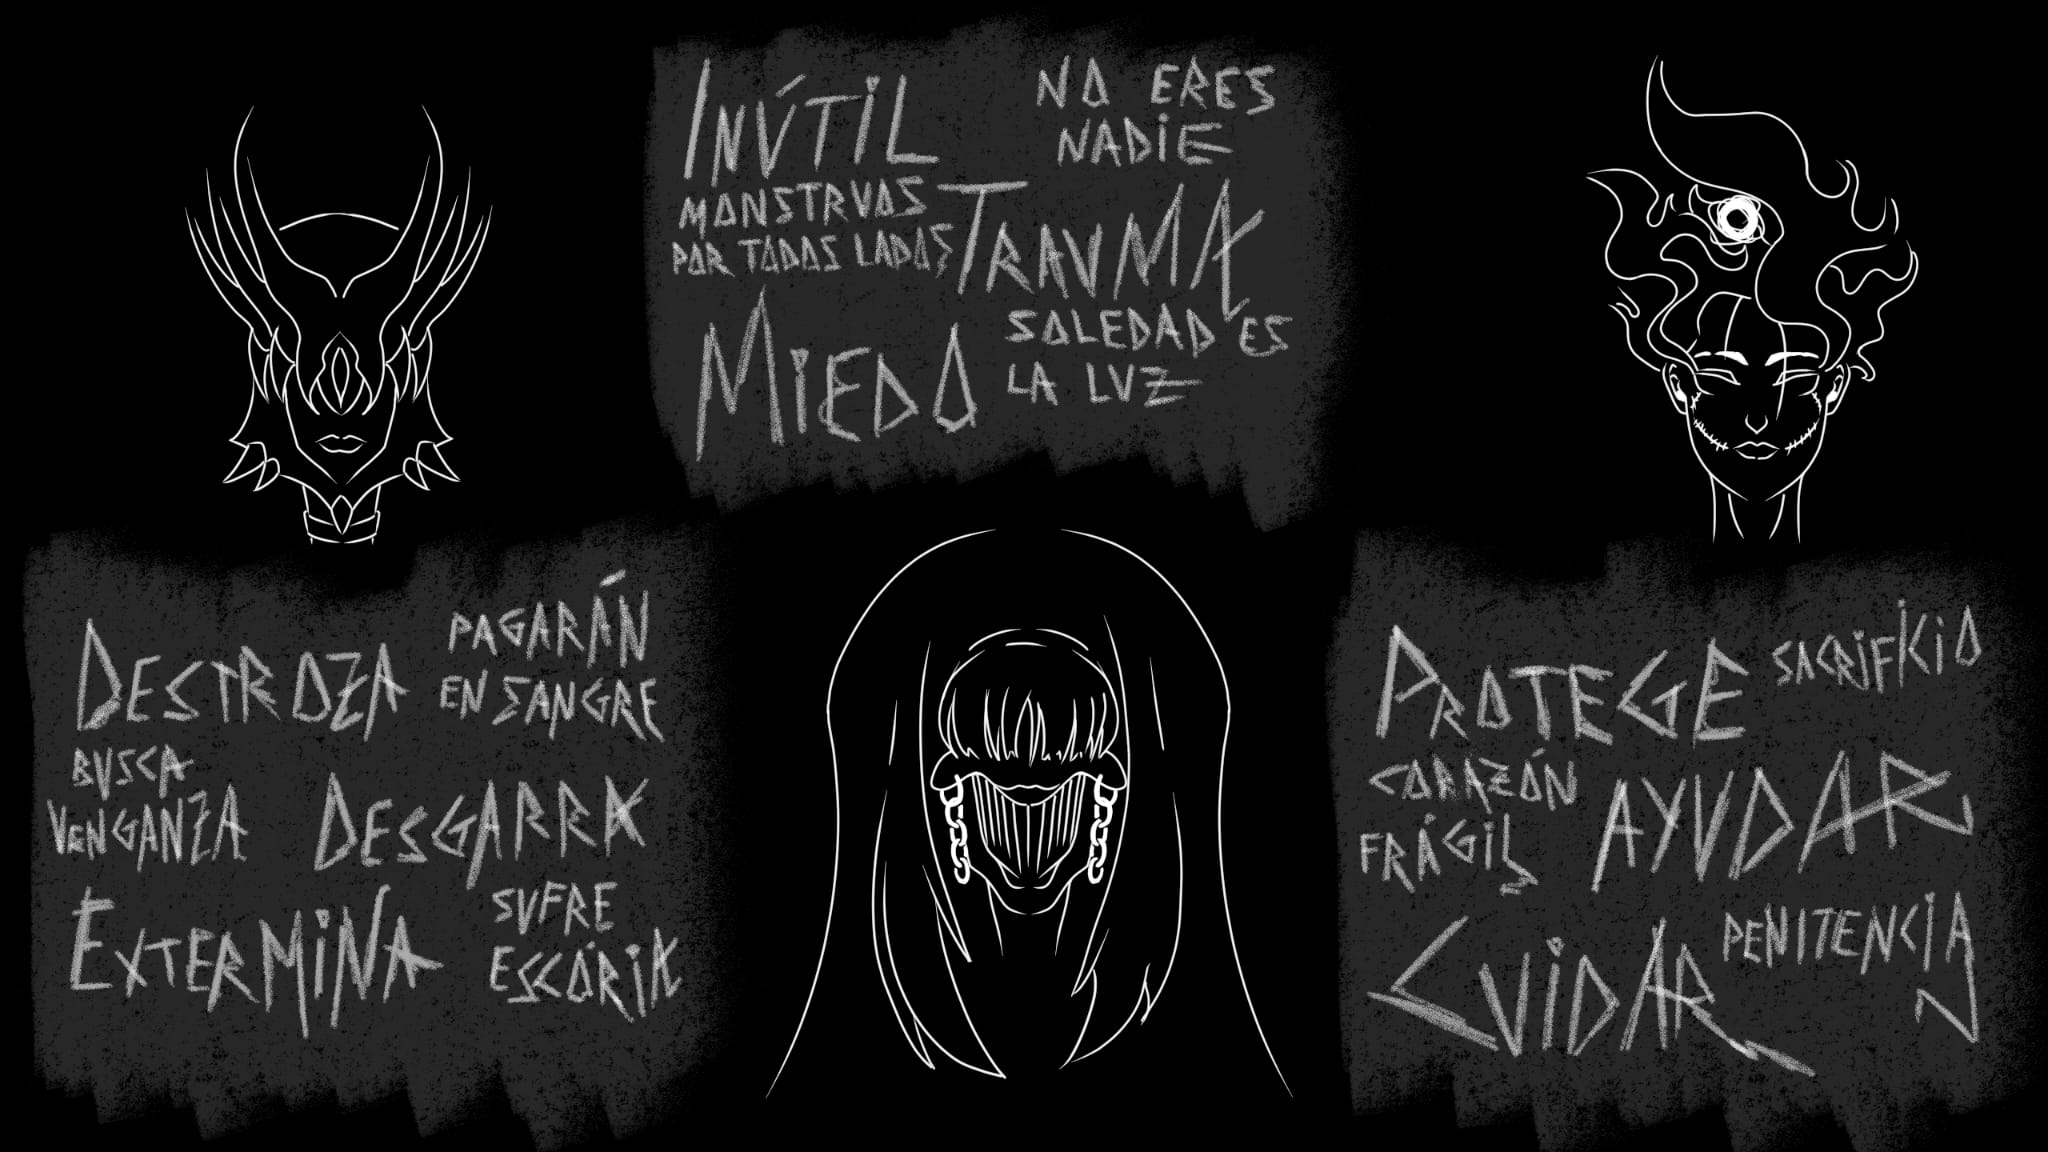 INÚTIL
NO ERES
NADIE
MONSTRUOS
POR TODOS LADOS
TRAUMA
MIEDO
SOLEDAD ES
LA LUZ
DESTROZA
PAGARÁN
EN SANGRE
BUSCA
VENGANZA
DESGARRA
EXTERMINA
SUFRE
ESCÓRIA
PROTEGE
SACRIFICIO
CORAZÓN
FRÁGIL
AYUDAR
CUIDAR
PENITENCIA